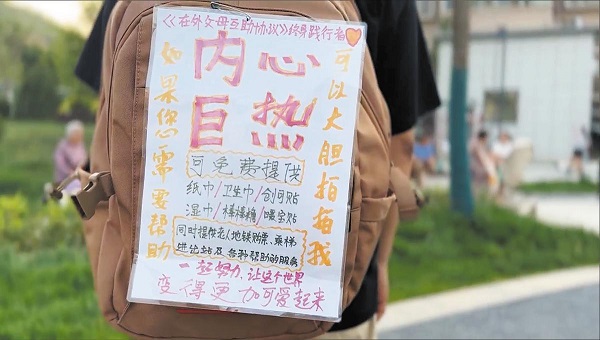 《在外父母互助协议》终身践行者
如果您需要帮助
内心
巨热
可以大胆拍拍我
可免费提供
纸巾/卫生巾/创可贴
湿巾/棒棒糖/暖宝贴
同时提供老人地铁购票、乘梯
进出站及各种帮助的服务
一起努力,让这个世界
变得更加可爱起来